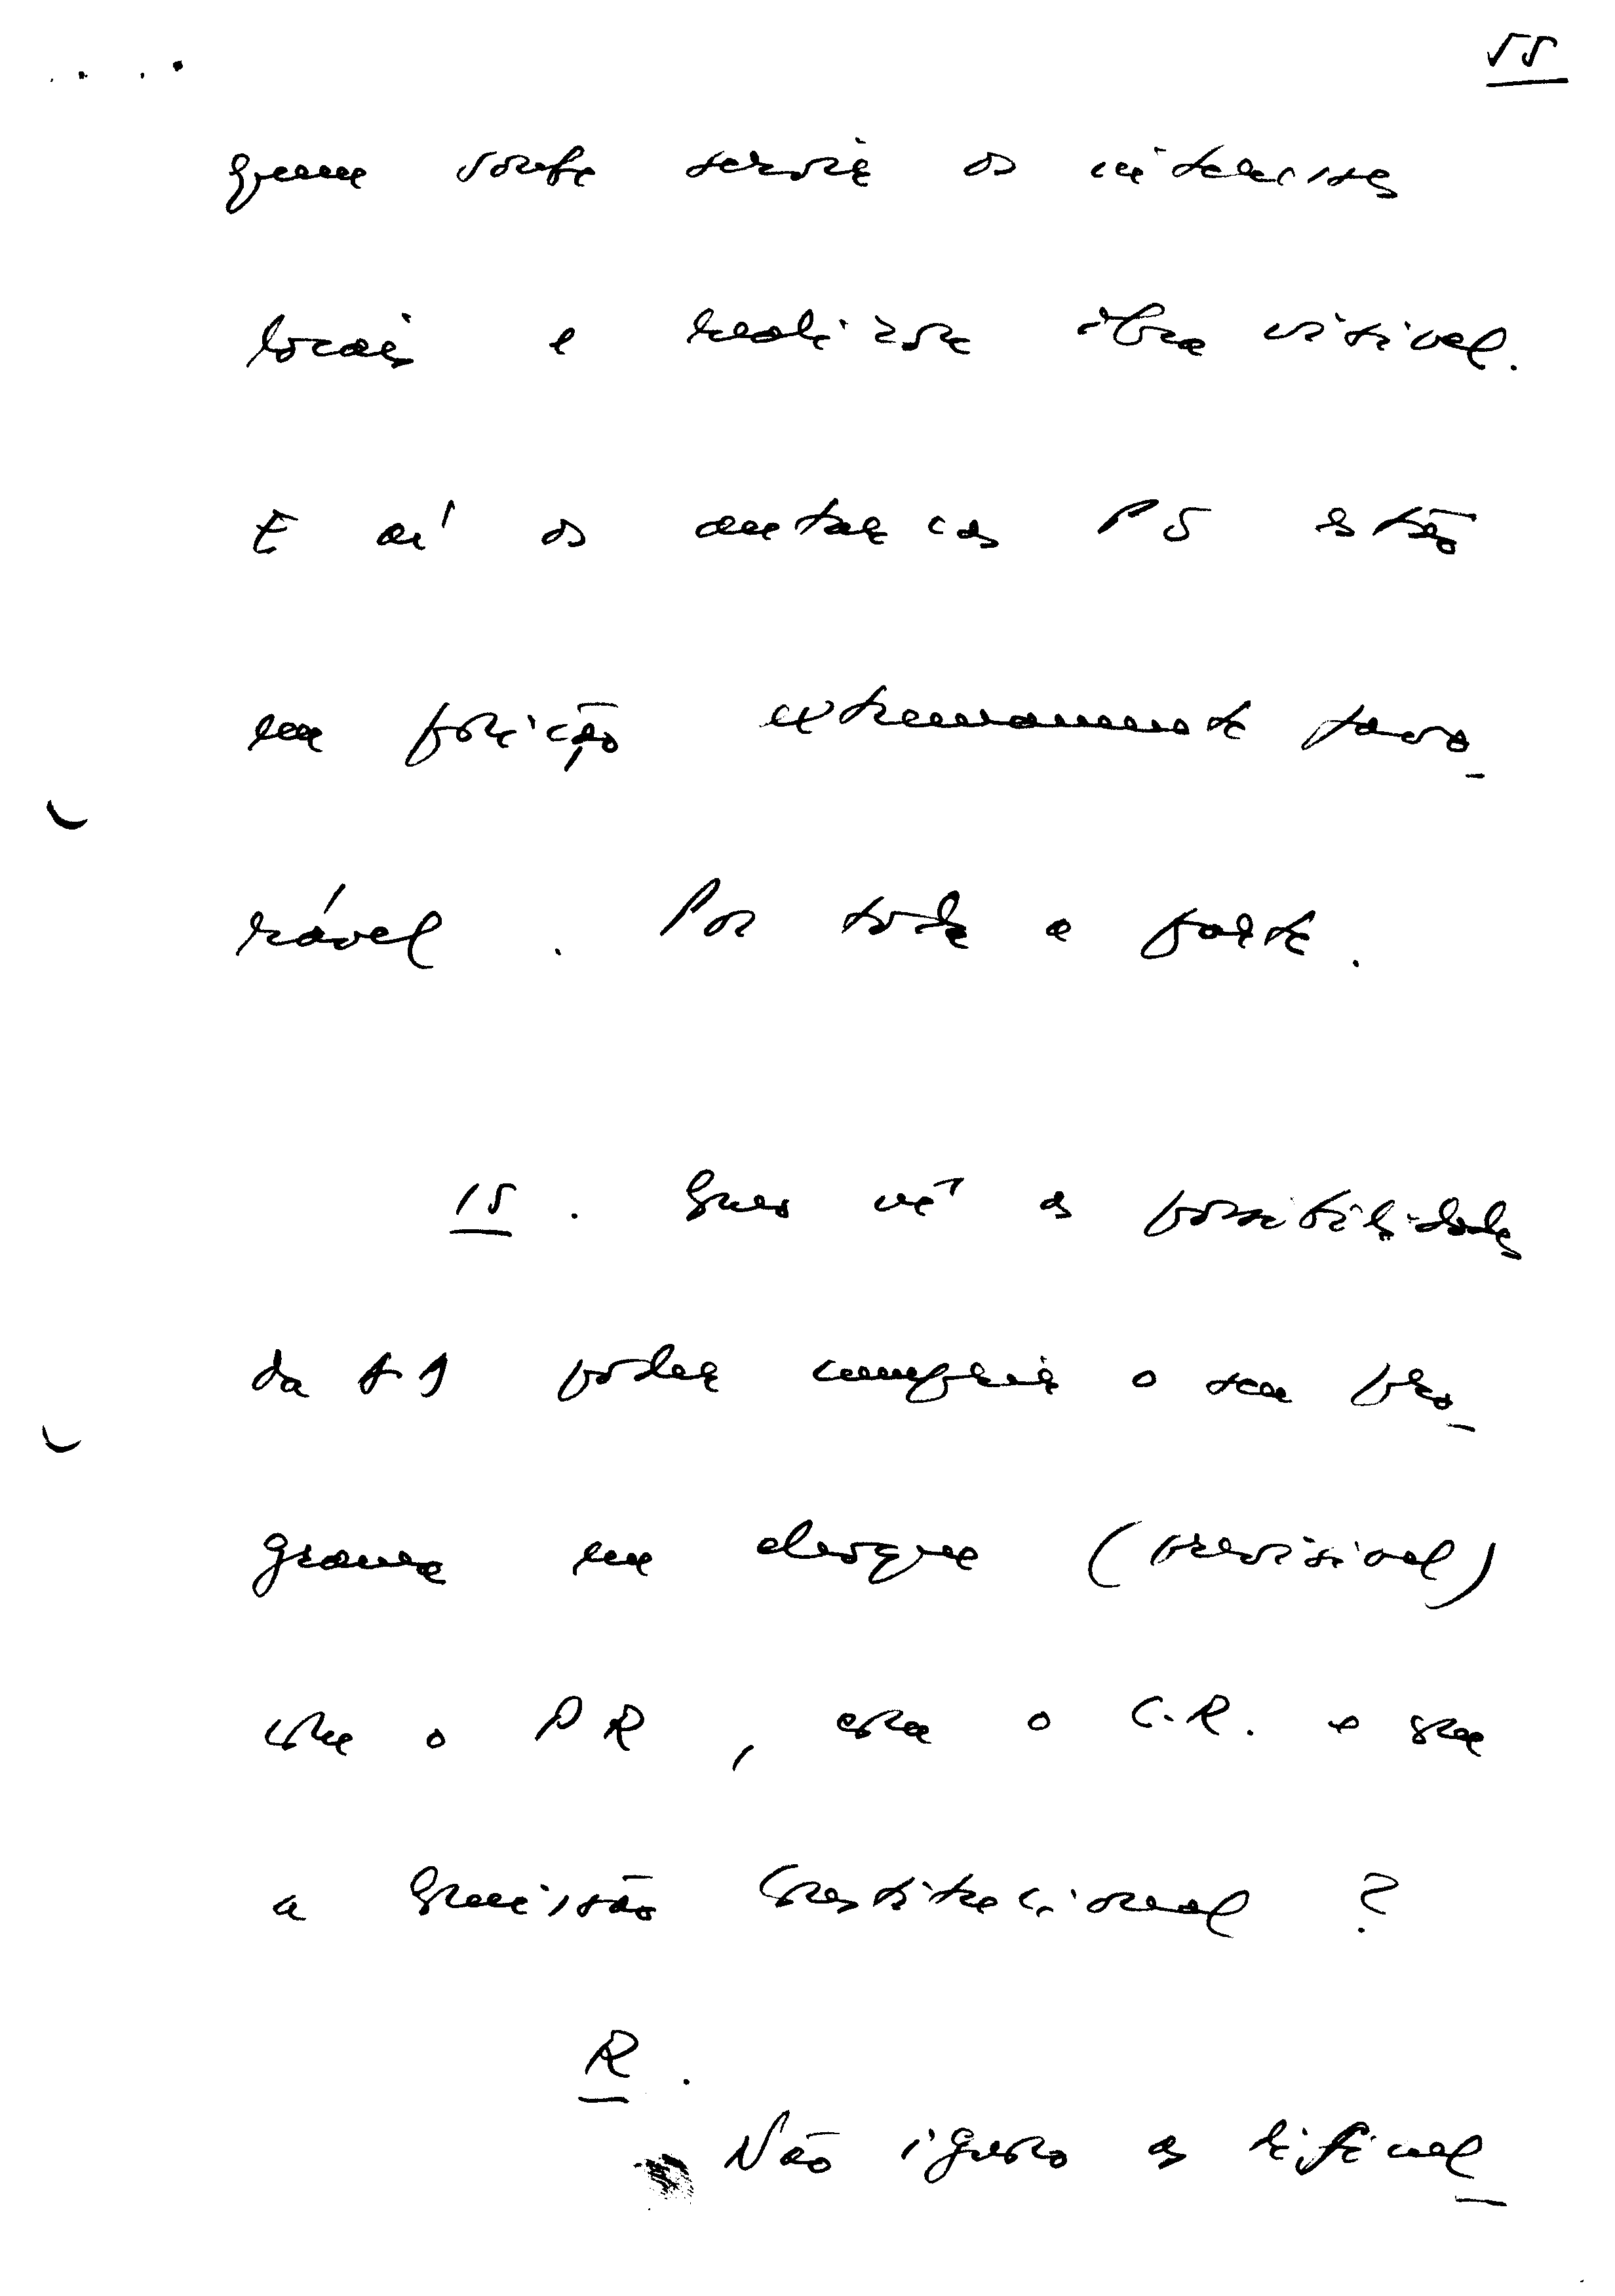 55
quem soube servir os interesses
locais e realizar obra visível.
E aí os autarcas PS estão
em posição extremamente favo-
rável. Por toda a parte.
15. Como vê as possibilidades
da AD poder cumprir o seu pro-
grama em choque (previsível)
com o PR, com o C.R. e com
a Comissão Constitucional?
R.
Não ignoro as dificul-